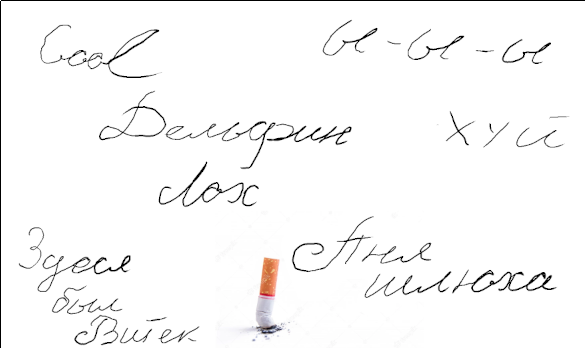 Cool
ы-ы-ы
Дельфин
хуй
Лох
Здеся
был
Витек
Аня
шлюха